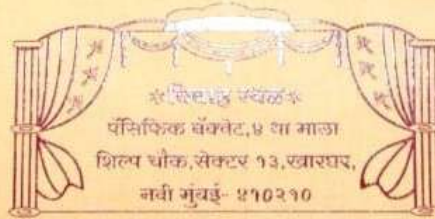 विवाह स्थळ
पॅसिफिक बँक्वेट,४ था माळा
शिल्प चौक,सेक्टर १३,खारघर,
नवी मुंबई- ४१०२१०